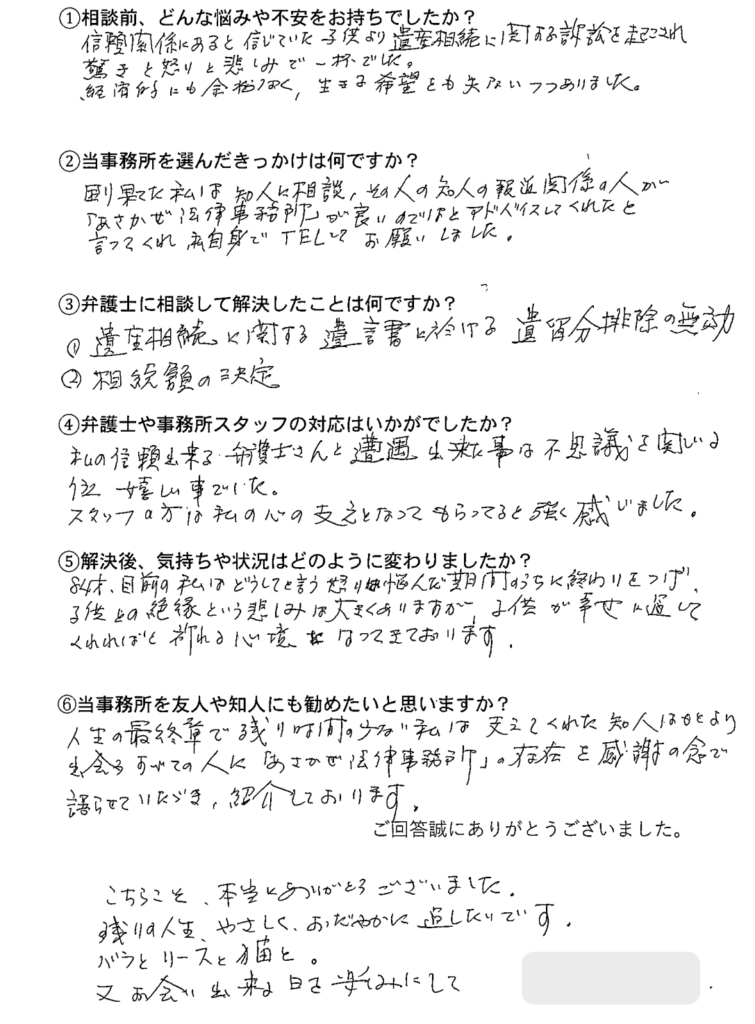 ①相談前、どんな悩みや不安をお持ちでしたか？
信頼関係にあると信じていた子供より遺産相続に関する訴訟を起こされ
驚きと怒りと悲しみで一杯でした。
経済的にも余裕なく、生きる希望をも失ないつつありました。
②当事務所を選んだきっかけは何ですか？
困り果てた私は知人に相談，その人の知人の報道関係の人が
「あさかぜ法律事務所」が良いのではとアドバイスしてくれたと
言ってくれ 私自身でTELしてお願いしました。
③弁護士に相談して解決したことは何ですか？
① 遺産相続に関する遺言書に於ける遺留分排除の無効
② 相続額の決定
④弁護士や事務所スタッフの対応はいかがでしたか？
私の信頼出来る弁護士さんと遭遇出来た事は不思議を感じる
位 嬉しい事でした。
スタッフの方は私の心の支えとなってもらってると強く感じました。
⑤解決後、気持ちや状況はどのように変わりましたか？
84才、目前の私はどうしてと言う怒り 悩んだ期間のうちに終わりをつげ，
子供との絶縁という悲しみは大きくありますが、子供が幸せに過して
くれればと祈れる心境になってきております．
⑥当事務所を友人や知人にも勧めたいと思いますか？
人生の最終章で残り時間の少ない私は 支えてくれた知人はもとより
出会うすべての人に「あさかぜ法律事務所」の存在を感謝の念で
語らせていただき，紹介しております．
ご回答誠にありがとうございました。
こちらこそ、本当にありがとうございました．
残りの人生、やさしく、おだやかに過したいです．
バラとリースと猫と。
又お会い出来る日を楽しみにして